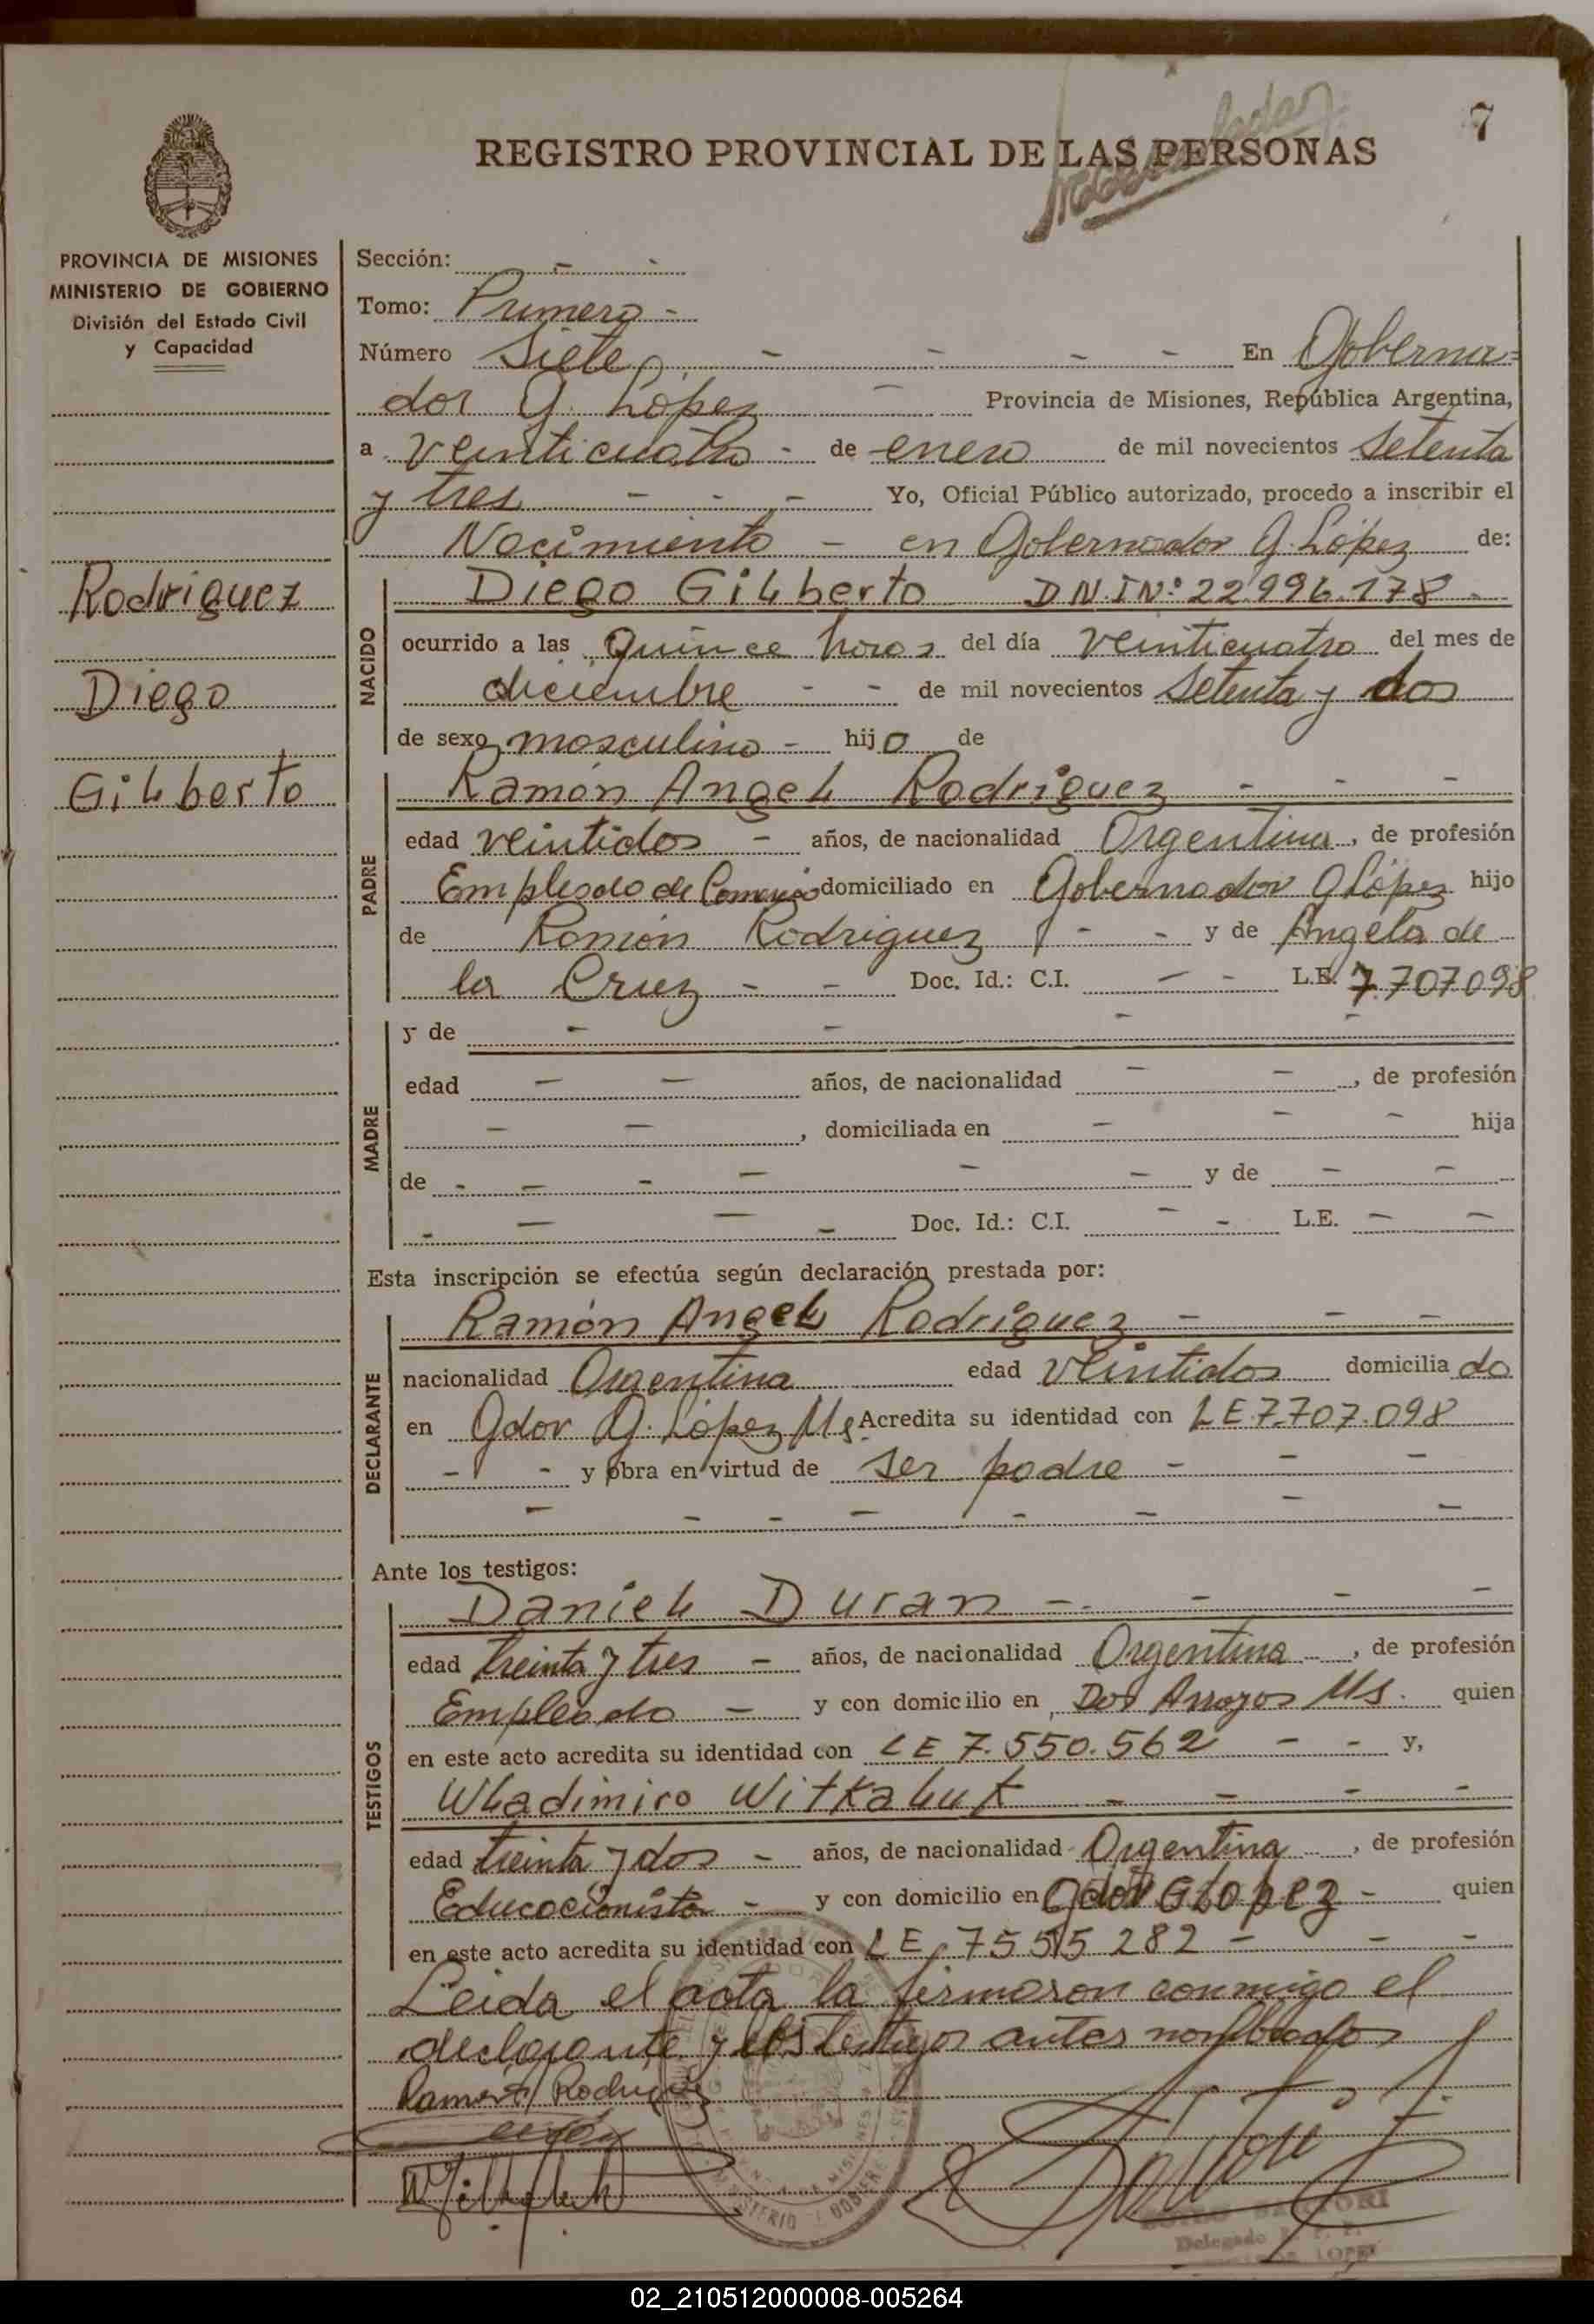 7
REGISTRO PROVINCIAL DE LAS PERSONAS
PROVINCIA DE MISIONES
MINISTERIO DE GOBIERNO
División del Estado Civil
y Capacidad
Rodriguez
Diego
Gilberto
Sección: - -
Tomo: Primero -
Número Siete - - - - En Goberna=
dor G. López - Provincia de Misiones, República Argentina,
a veinticuatro - de enero de mil novecientos setenta
y tres - - - Yo, Oficial Público autorizado, procedo a inscribir el
Nacimiento - en Gobernador G. López de:
NACIDO
Diego Gilberto D N. I Nº 22.996.178 -
ocurrido a las Quince horas del día veinticuatro del mes de
diciembre - - de mil novecientos setenta y dos
de sexo masculino - hijo de
PADRE
Ramón Angel Rodríguez - - -
edad veintidos - años, de nacionalidad Argentina, de profesión
Empleado de Comercio domiciliado en Gobernador G López hijo
de Ramón Rodriguez - - y de Angela de
la Cruz - - Doc. Id.: C.I. - - L.E. 7.707098
MADRE
y de - - - -
edad - - años, de nacionalidad - -, de profesión
- -, domiciliada en - - - hija
de - - - - - - y de - -
- - - - Doc. Id.: C.I. - - L.E. - -
Esta inscripción se efectúa según declaración prestada por:
DECLARANTE
Ramón Angel Rodríguez - - -
nacionalidad Argentina edad veintidos domiciliado
en Gdor G. López Ms. Acredita su identidad con L E 7.707.098
- - y obra en virtud de ser padre - - -
- - - - - - - -
Ante los testigos:
TESTIGOS
Daniel Duran - - - -
edad treinta y tres - años, de nacionalidad Argentina, de profesión
Empleado - y con domicilio en Dos Arroyos Ms. quien
en este acto acredita su identidad con L E 7.550.562 - - y,
Wladimiro Witkaluk - - - -
edad treinta y dos - años, de nacionalidad Argentina, de profesión
Educacionista - y con domicilio en Gdor G Lopez - quien
en este acto acredita su identidad con L E 7555 282 - - -
Leida el acta la firmaron conmigo el
declarante y los testigos antes nombrados
Ramon Rodriguez
SARTORI
Delegado
LOPEZ
02_210512000008-005264